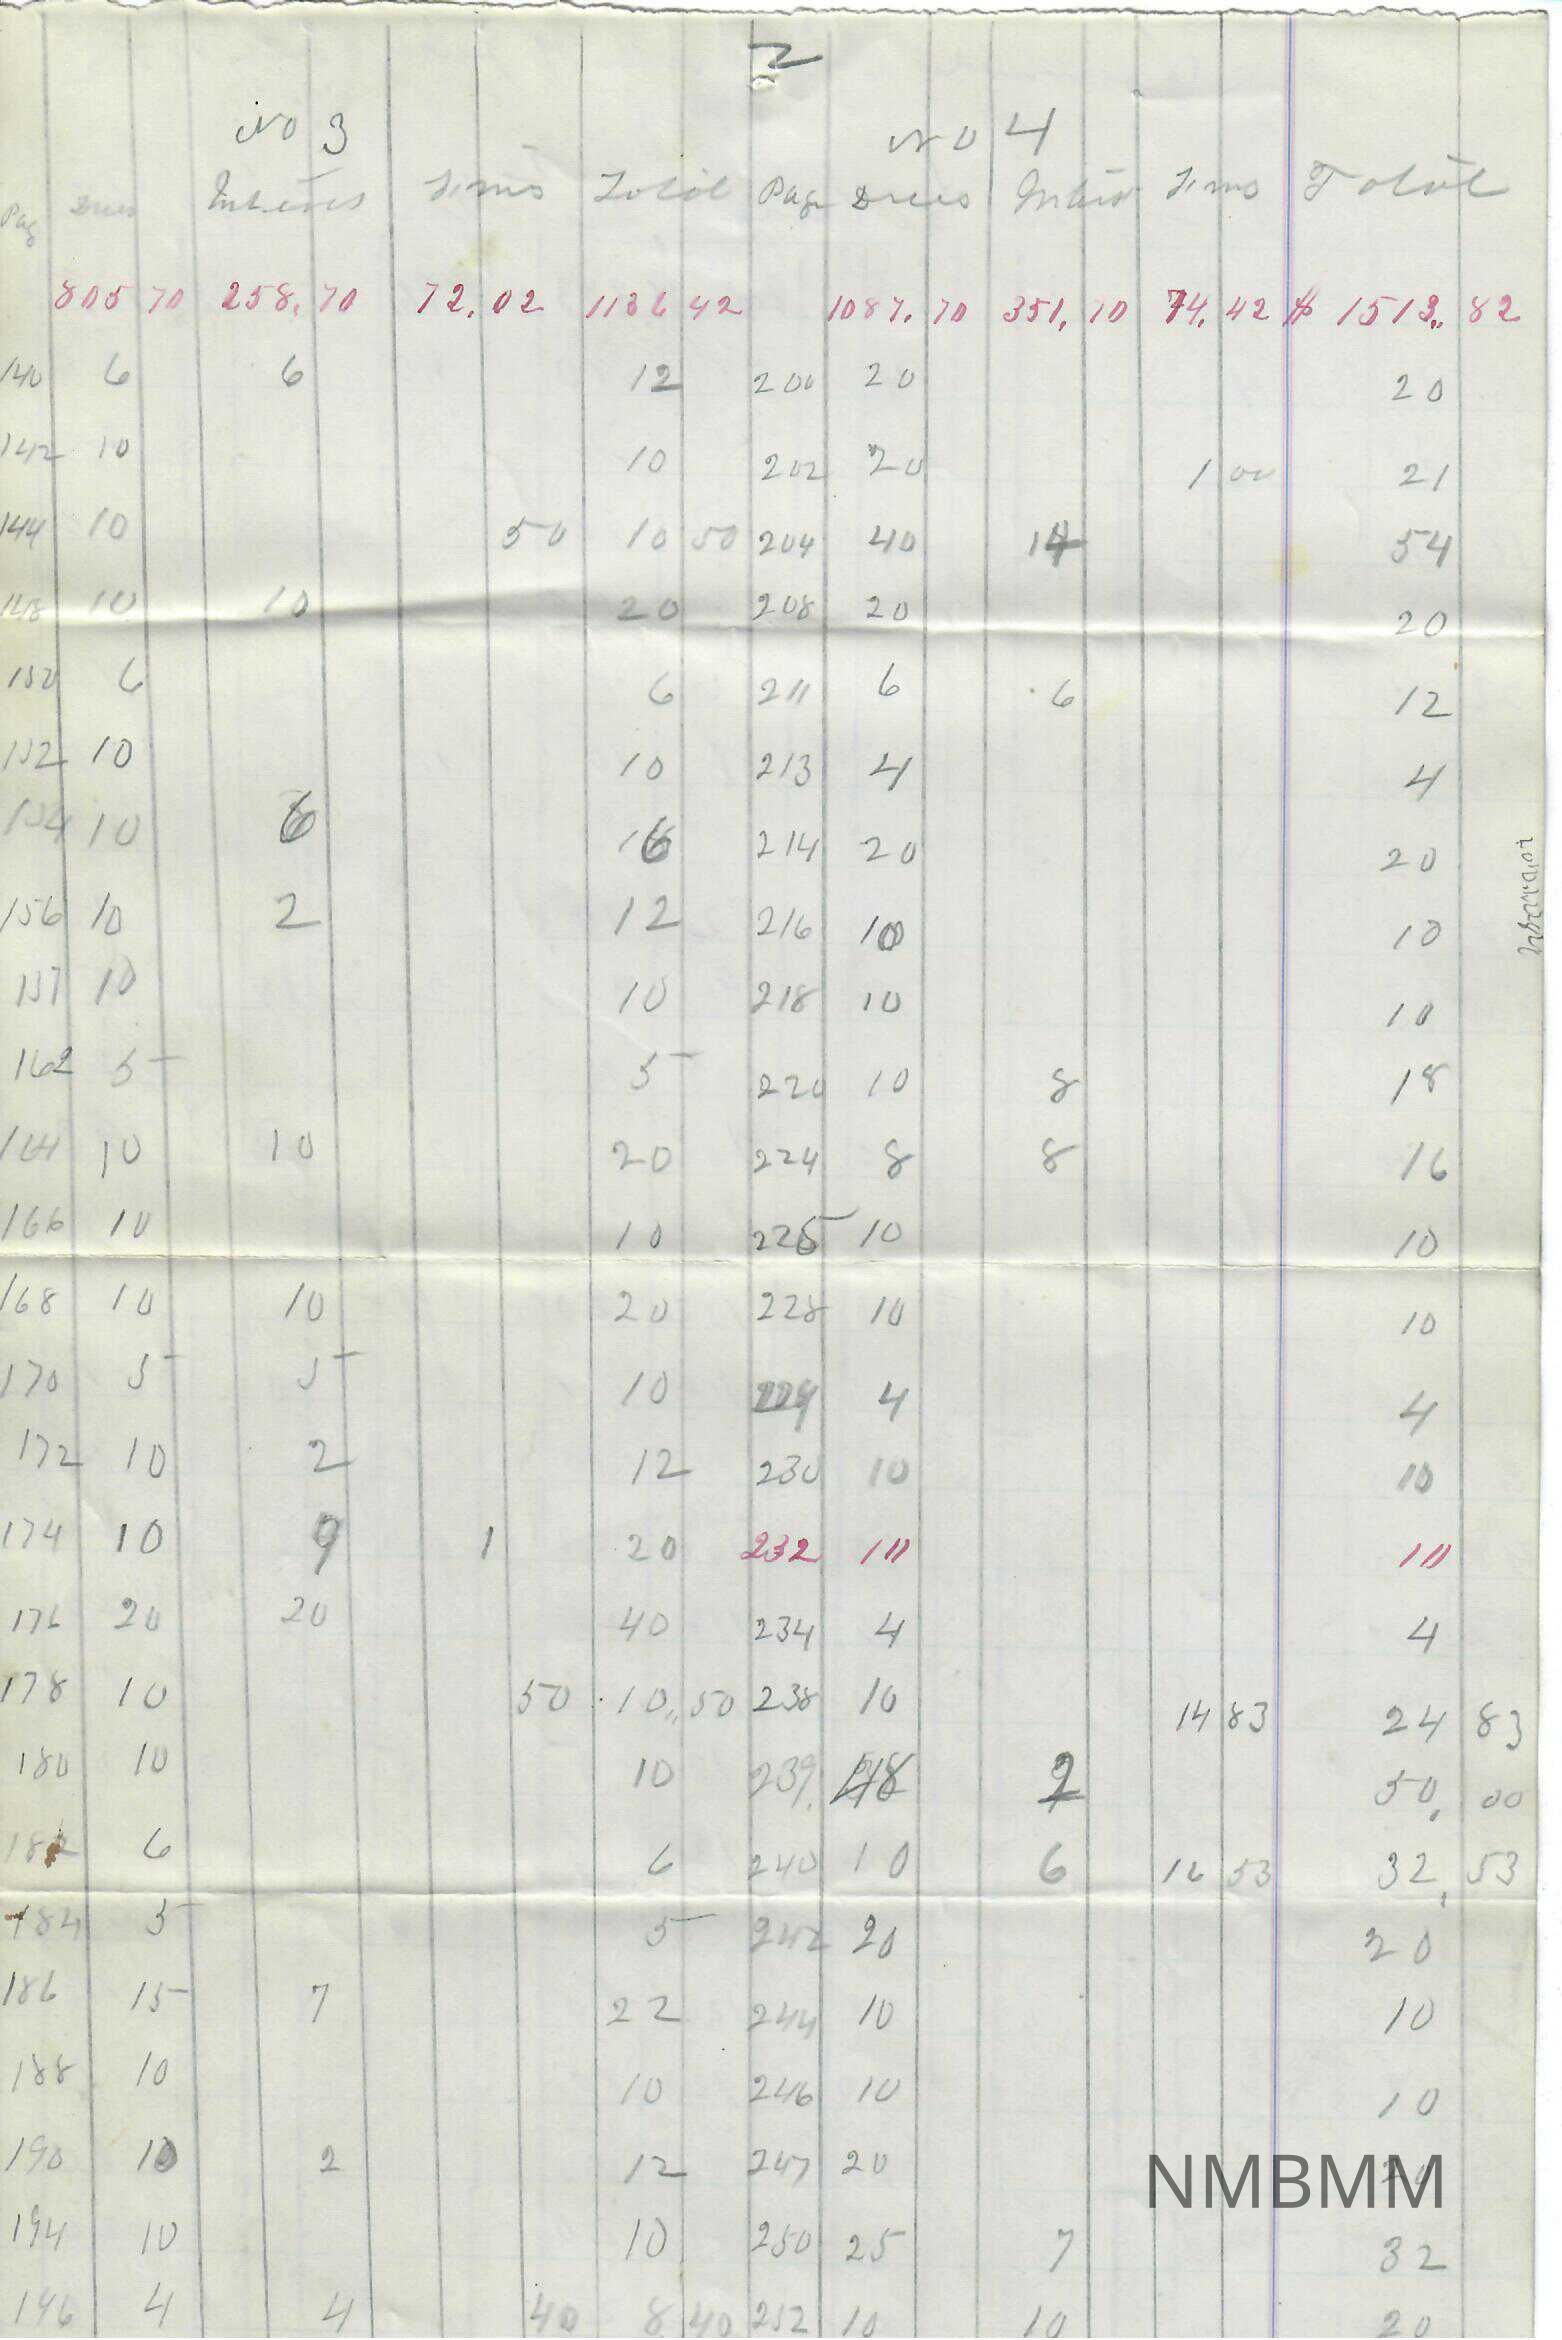 2
No 3 No 4
Pag Dues Total Page Dues Total
805 70 258. 70 72. 02 1136 42 1087. 70 351. 70 74. 42 $ 1513.. 82
140 6 6 12 200 20 20
142 10 10 202 20 1 00 21
144 10 50 10 50 204 40 14 54
148 10 10 20 208 20 20
150 6 6 211 6 6 12
152 10 10 213 4 4
154 10 6 16 214 20 20
156 10 2 12 216 10 10
157 10 10 218 10 10
162 5 5 220 10 8 18
164 10 10 20 224 8 8 16
166 10 10 225 10 10
168 10 10 20 228 10 10
170 5 5 10 229 4 4
172 10 2 12 230 10 10
174 10 9 1 20 232 10 10
176 20 20 40 234 4 4
178 10 50 10,, 50 238 10 14 83 24 83
180 10 10 239. 48 2 50. 00
182 6 6 240 10 6 16 53 32. 53
184 5 5 242 20 20
186 15 7 22 244 10 10
188 10 10 246 10 10
190 10 2 12 247 20 20
194 10 10 250 25 7 32
196 4 4 40 8 40 252 10 10 20
NMBMM